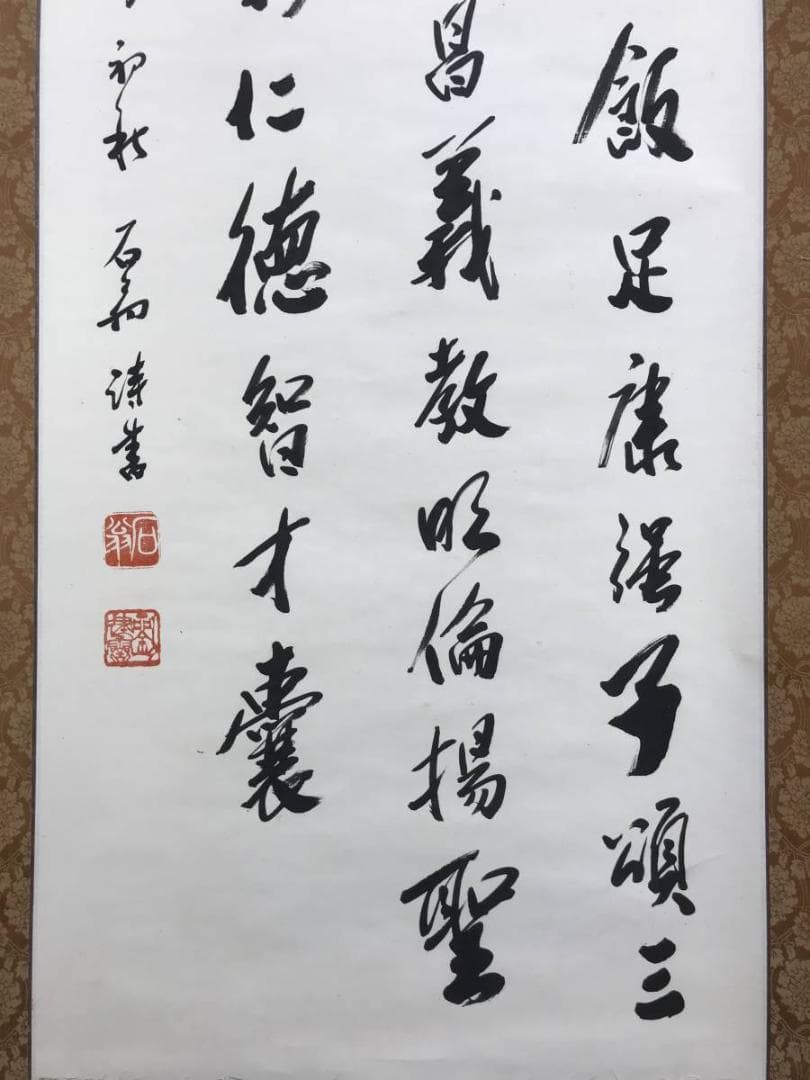 飯足康強子頌三
昌義教明倫揚聖
仁德智才囊
初秋 石翁 詩書
石翁